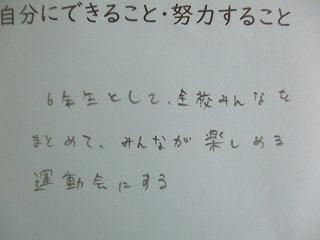 自分にできること・努力すること
6年生として、全校みんなを
まとめて、みんなが楽しめる
運動会にする